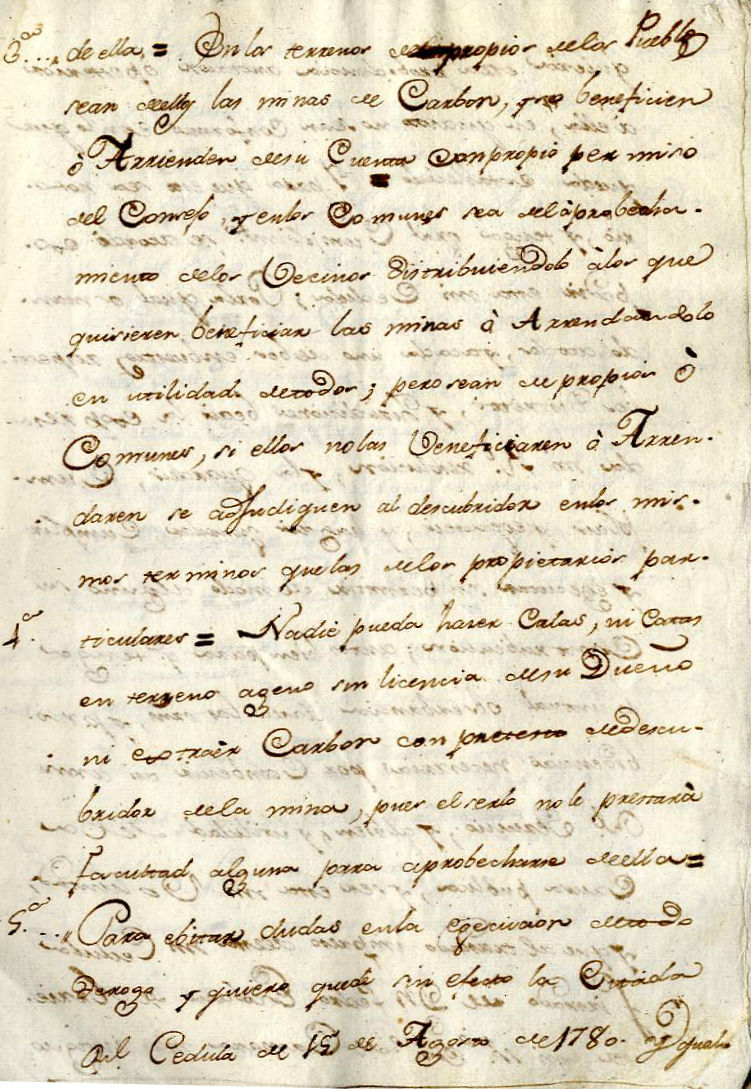 3ª.... de ella = En los terrenos de propios de los Pueblos
sean de ellos las minas de Carbon, y se beneficien
ò Arrienden de su Cuenta con propio permiso
del Consejo, y en los Comunes sea del àprobecha-
miento de los Vecinos distribuiendolo àlos que
quisieren beneficiar las minas ò Arrendandolo
en utilidad de todos; pero sean de propios Ò
Comunes, si ellos no las beneficiaren ò Arren-
daren se adjudiquen al descubridor en los mis-
mos terminos que las de los propietarios par-
4ª. ticulares = Nadie pueda hacer Calas, ni Catas
en terreno ageno sin licencia de su Dueño
ni extraèr Carbon con pretesto de descu-
bridor de la mina, pues el serlo no le prestarà
facultad alguna para aprobecharse de ella =
5ª.... Para ebitar dudas en la egecucion de todo
Deroga y quiero quede sin efecto la Citada
Rl Cedula de 15 de Agosto de 1780. Y qual